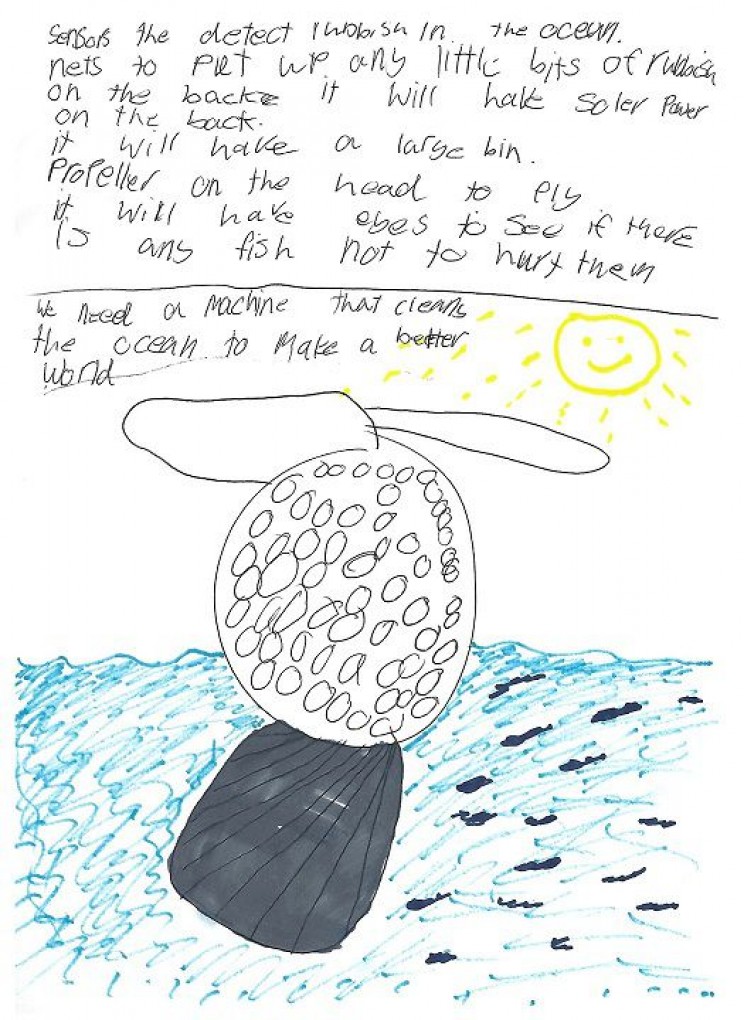 Sensors the detect rubbish in the ocean.
nets to put up any little bits of rubbish
on the back it will have soler power
on the back.
it will have a large bin.
Propeller on the head to fly
it will have eyes to see if there
is any fish not to hurt them
we need a machine that cleans
the ocean to make a better
world